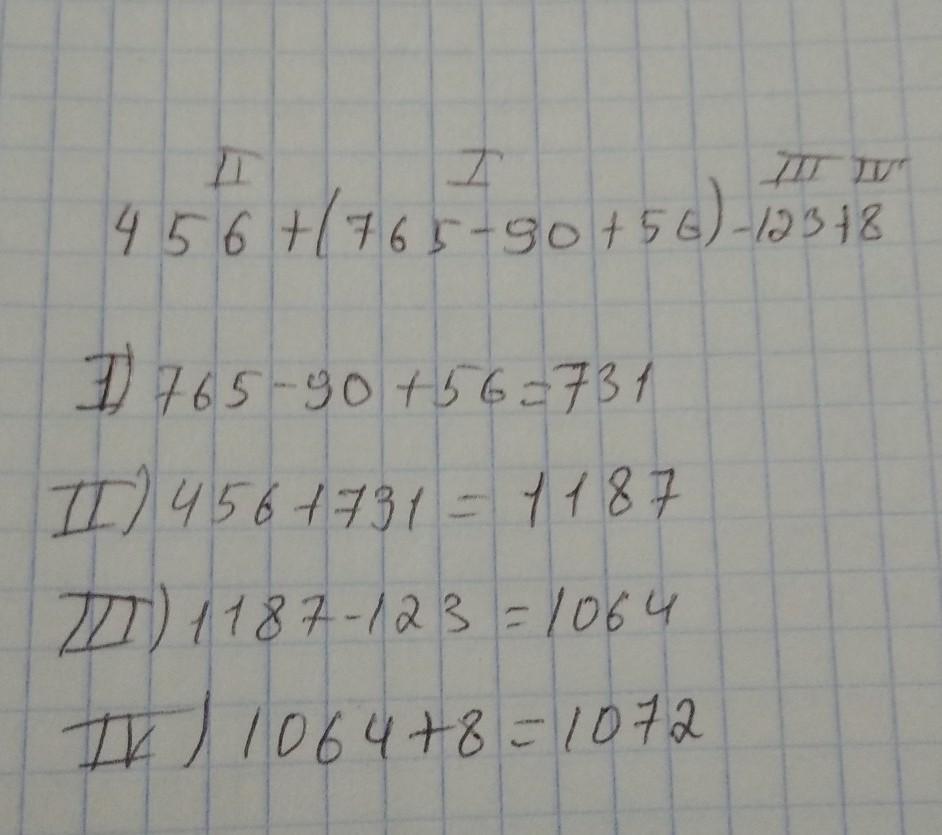 II I III IV
456+(765-90+56)-123+8
I) 765-90+56=731
II) 456+731=1187
III) 1187-123=1064
IV) 1064+8=1072